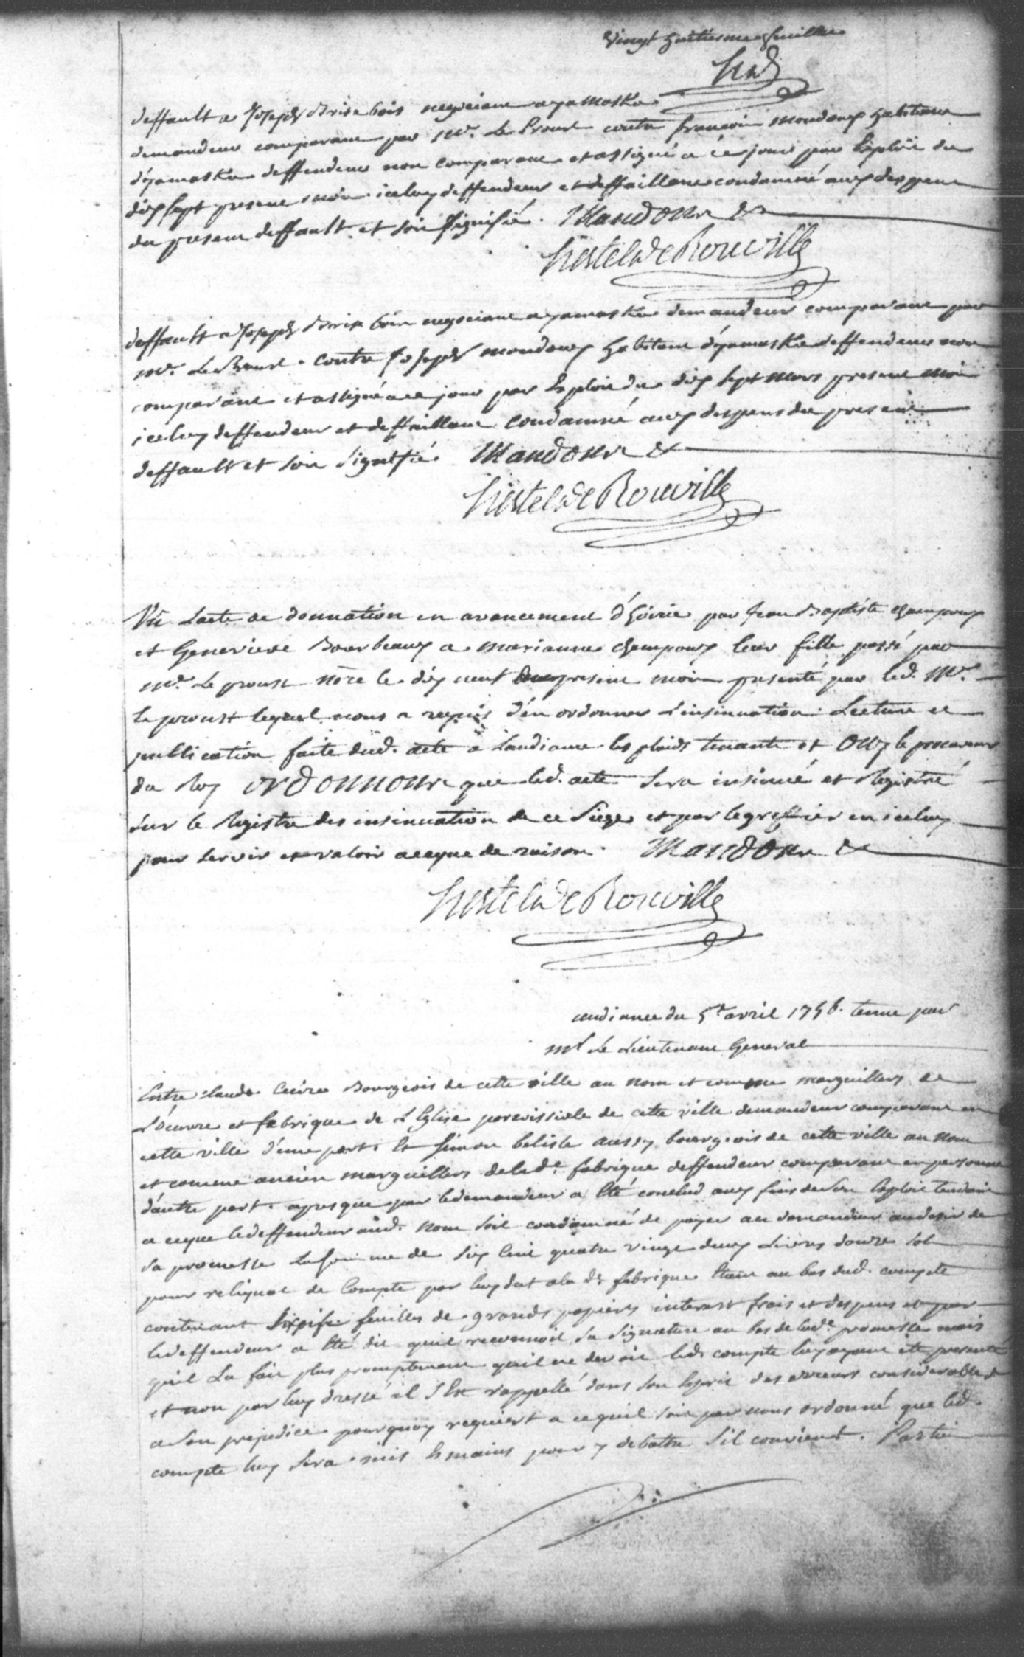 Vingt huitiesme feuillet
deffault a Joseph Brisebois negociant a yamaska
demandeur comparant par Mr. Le Proust contre francois mondoux habitant
dyamaska deffendeur non comparant et assigné a ce jour par Exploit du
dix sept present mois iceluy deffendeur et deffaillant condamné aux despens
du present deffault et soit signifié. Mandons &
hertel de Rouville
deffault a Joseph Brisebois negociant a yamaska demandeur comparant par
Mr. Le Proust. contre Joseph mondoux habitant dyamaska deffendeur non
comparant et assigné a ce jour par Exploit du dix sept mars present mois
iceluy deffendeur et deffaillant condamné aux despens du present
deffault et soit signiffié. Mandons &
hertel de Rouville
Vû L'acte de donnation en avancement d'hoirie par Jean Baptiste champoux
et Genevieve Bourbeaux a marianne champoux leur fille passé par
Mr. Le proust nore le dix neuf du present mois presenté par led. Mr.
le proust lequel nous a requis d'en ordonner L'insinuation. Lecture et
publication faite dud. acte a Laudiance les plaids tenants et Ouy le procureur
du Roy Ordonnons que led. acte sera insinué et Registré
sur le Registre des insinuation de ce Siege et par le greffier en iceluy
pour servir et valoir a ce que de raison. Mandons &
hertel de Rouville
audiance du 5e avril 1756. tenue par
Mr. Le Lieutenant General
Entre Claude Bourgeois de cette ville au nom et comme marguilliers de
L'oeuvre et fabrique de L'Eglise paroissialle de cette ville demandeur comparant en
cette ville d'une part. Et Simon belisle aussy bourgeois de cette ville au nom
et comme ancien marguilliers de lad.e fabrique deffendeur comparant en personne
d'autre part. apres que par le demandeur a Eté conclud aux fins de son Exploit tendant
a ce que le deffendeur aud. nom soit condamné de payer au demandeur au desir de
sa promesse La somme de Six Cent quatre vingt deux Livres douze sol
pour reliquat de Compte par luy dut a la de fabrique Etant au bas dud. compte
contenant feuilles de grands papiers interest frais et despens et par
le deffendeur a Eté dit quil reconnoit sa signature au bas de lad.e promesse mais
quil La fait plus promptement quil ne devoit led. compte luy ayant été presenté
et non par luy dressé il s'Est rappellé dans son Esprit des erreurs considerables
a son prejudice pourquoy requiert a ce quil soit par nous ordonné que led.
compte luy sera mis Es mains pour y debattre s'il convient. Partie